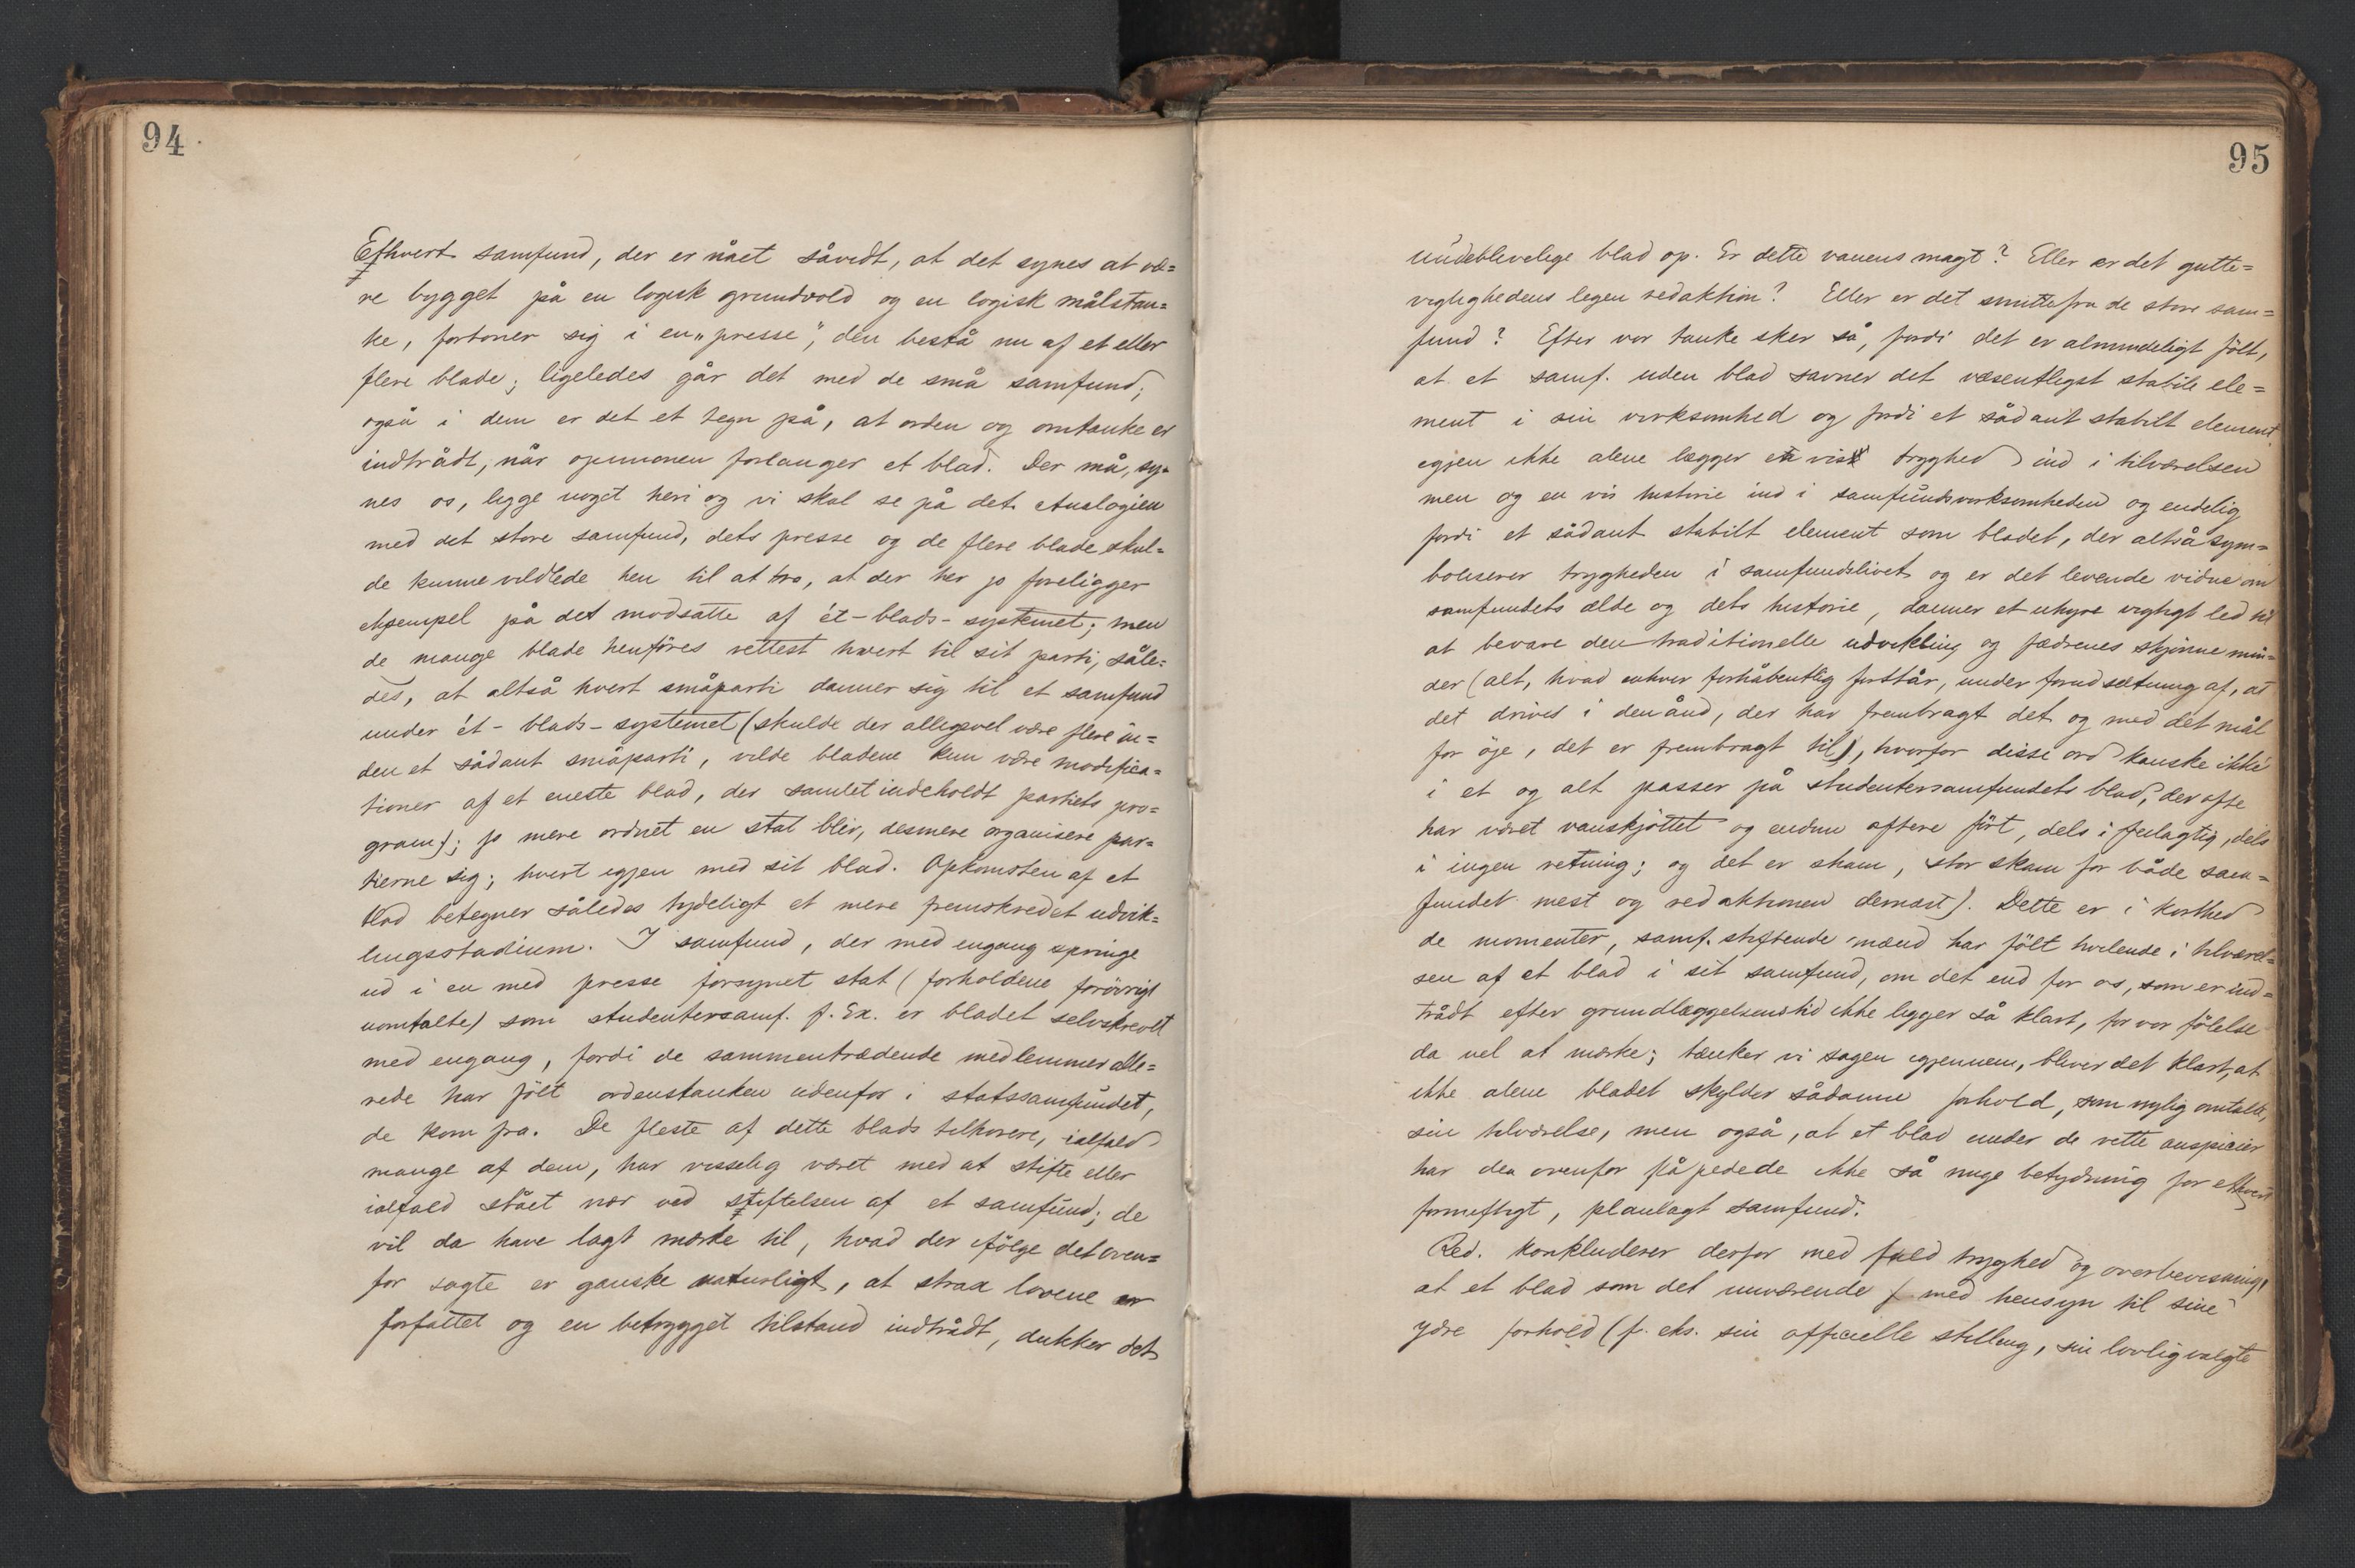 94.
Ethvert samfund, der er nået såvidt, at det synes at væ=
re bygget på en logisk grundvold og en logisk målstan=
ke, fortoner sig i en „presse", den bestå nu af et eller
flere blade; ligeledes går det med de små samfund;
også i dem er det et tegn på, at orden og omtanke er
indtrådt, når opinionen forlanger et blad. Der må, sy=
nes os, ligge noget heri og vi skal se på det. Analogien
med det store samfund, dets presse og de flere blade skul=
de kunne vildlede hen til at tro, at der her jo foreligger
eksempel på det modsatte af ét-blads-systemet; men
de mange blade henföres rettest hvert til sit parti, såle=
des, at altså hvert småparti danner sig til et samfund
under ét-blads-systemet (skulde der alligevel være flere in=
den et sådant småparti, vilde bladene kun være modifica=
tioner af et eneste blad, der samlet indeholdt partiets pro=
gram); jo mere ordnet en stat blir, desmere organisere par=
tierne sig; hvert igjen med sit blad. Opkomsten af et
blad betegner således tydeligt et mere fremskredet udvik=
lingsstadium. I samfund, der med engang springe
ud i en med presse forsynet stat (forholdene forövrigt
uomtalte) som studentersamf. f. Ex. er bladet selvskrevet
med engang, fordi de sammentrædende medlemmer alle=
rede har fölt ordenstanken udenfor i statssamfundet,
de kom fra. De fleste af dette blads tilhorere, ialfald
mange af dem, har visselig været med at stifte eller
ialfald stået nær ved stiftelsen af et samfund; de
vil da have lagt mærke til, hvad der ifölge det oven=
for sagte er ganske naturligt, at strax lovene er
forfattet og en betrygget tilstand indtrådt, dukker det
95
uudeblivelige blad op. Er dette vanens magt? Eller er det gutte=
vigtighedens legen redaktion? Eller er det smitte fra de store sam=
fund? Efter vor tanke sker så, fordi det er almindeligt fölt,
at et samf. uden blad savner det væsentligst stabile ele=
ment i sin virksomhed og fordi et sådant stabilt element
igjen ikke alene lægger en vis tryghed ind i tilværelsen
men og en vis historie ind i samfundsvirksomheden og endelig
fordi et sådant stabilt element som bladet, der altså sym=
boliserer trygheden i samfundslivet og er det levende vidne om
samfundets ælde og dets historie, danner et uhyre vigtigt led til
at bevare den traditionelle udvikling og fædrenes skjønne min=
der (alt, hvad enhver forhåbentlig forstår, under forudsætning af, at
det drives i den ånd, der har frembragt det og med det mål
for öje, det er frembragt til), hvorfor disse ord kanske ikke
i et og alt passer på studentersamfundets blad, der ofte
har været vanskjöttet og endnu oftere fört, dels i feilagtig, dels
i ingen retning; og det er skam, stor skam for både sam=
fundet mest og redaktionen dernæst). Dette er i korthed
de momenter, samf. stiftende mænd har fölt hvilende i tilværel=
sen af et blad i sit samfund, om det end for os, som er ind=
trådt efter grundlæggelsens tid ikke ligger så klart, for vor fölelse
da vel at mærke; tænker vi sagen igjennem, bliver det klart, at
ikke alene bladet skylder sådanne forhold, som nylig omtalte,
sin tilværelse, men også, at et blad under de rette auspicier
har den ovenfor påpegede ikke så ringe betydning for ethvert
fornuftigt, planlagt samfund.
Red. konkluderer derfor med fuld tryghed og overbevisning,
at et blad som det nuværende med hensyn til sine
ydre forhold (f. eks. sin officielle stilling, sin lovlig valgte